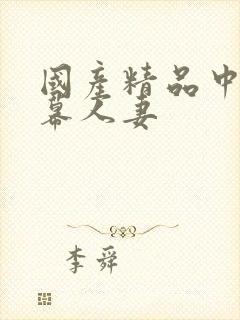 國產精品中
幕人妻
李舜